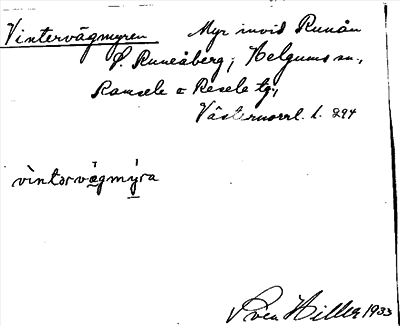 Vintervägmyren Myr invid Runån
S. Runeåberg; Helgums sn.,
Ramsele o Resele tg.,
Västernorrl. l. 294
vìntərvä̱gmý̱ra
Sven Hiller 1933